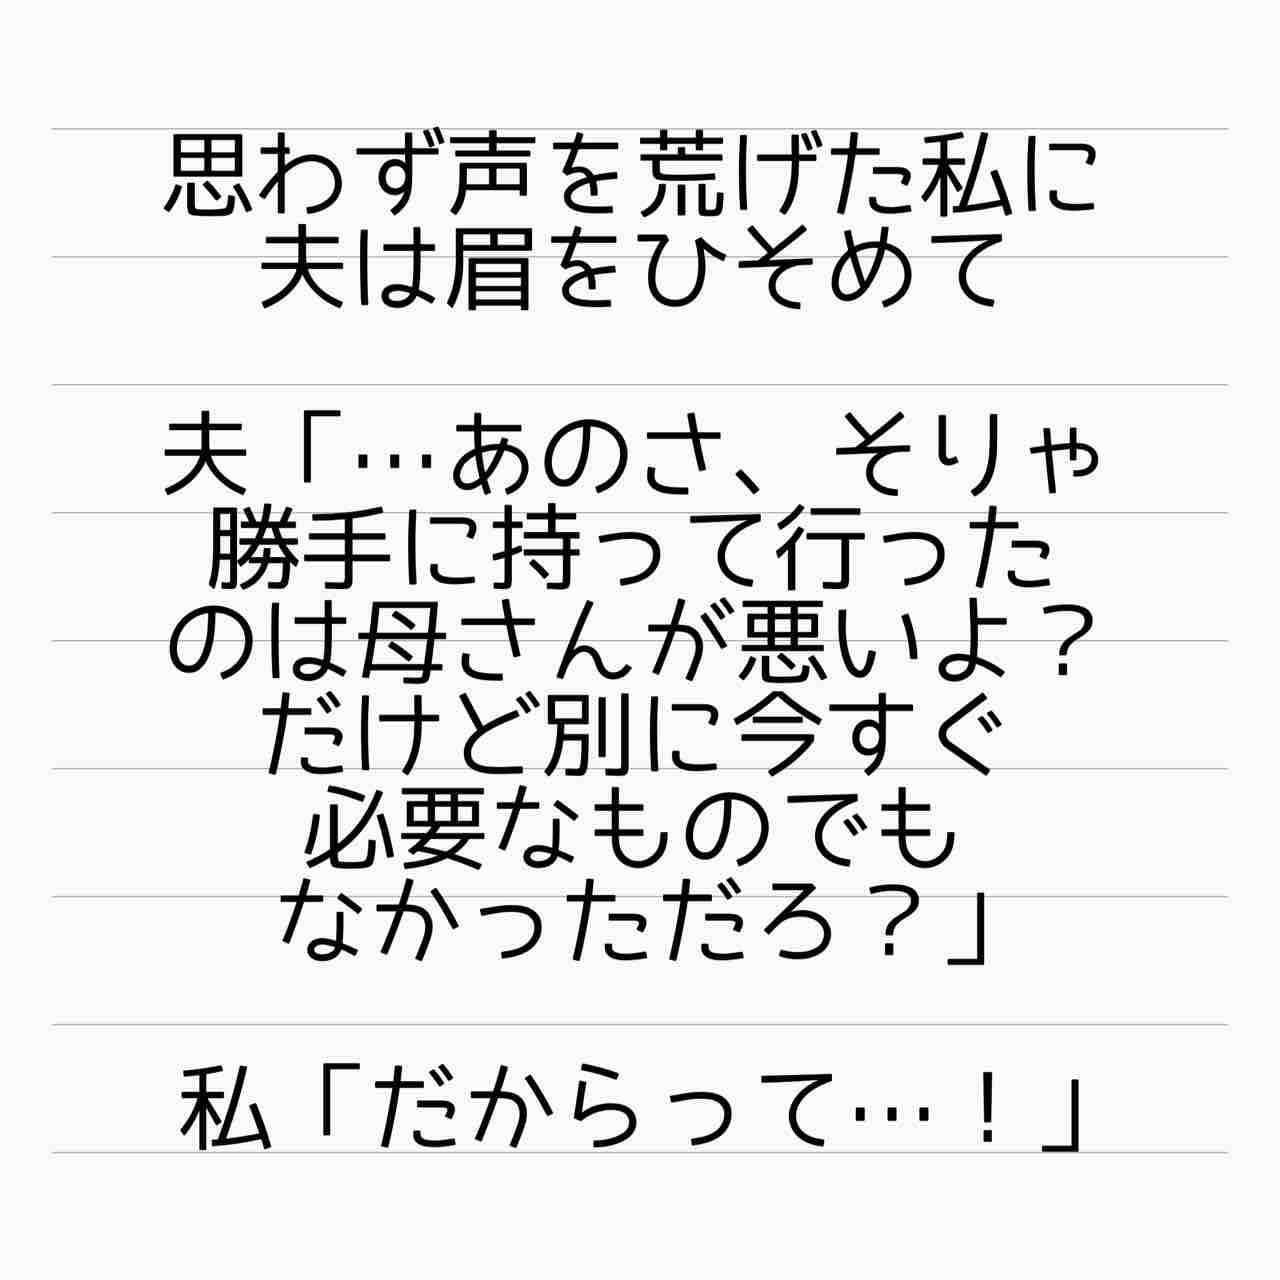 思わず声を荒げた私に
夫は眉をひそめて
夫「…あのさ、そりゃ
勝手に持って行った
のは母さんが悪いよ？
だけど別に今すぐ
必要なものでも
なかっただろ？」
私「だからって…！」